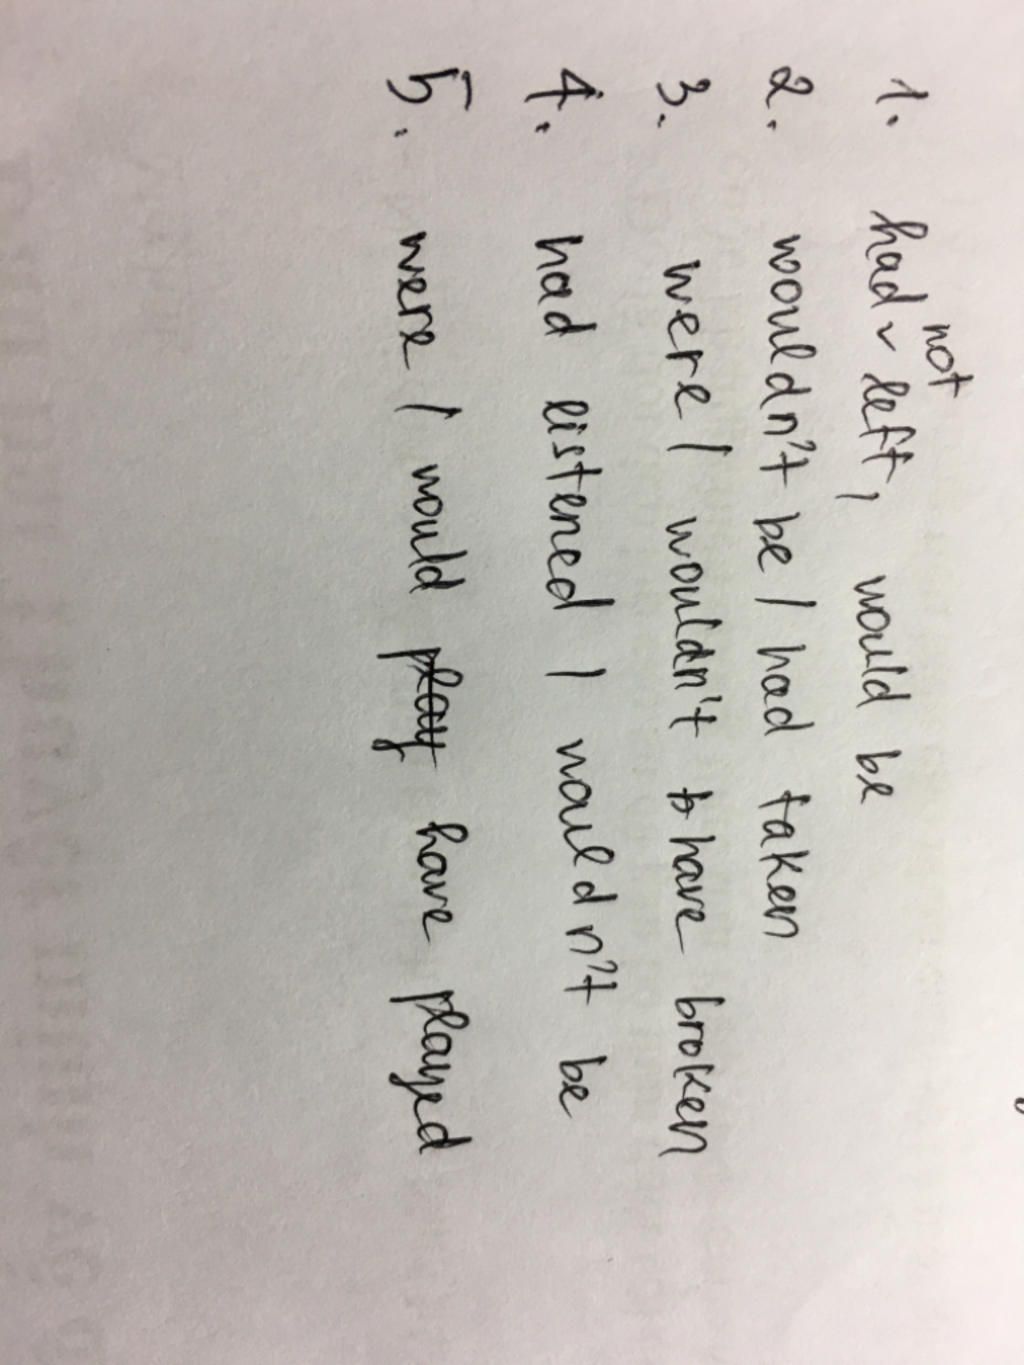 1. had not left, would be
2. wouldn't be / had taken
3. were / wouldn't have broken
4. had listened / wouldn't be
5. were / would play have played